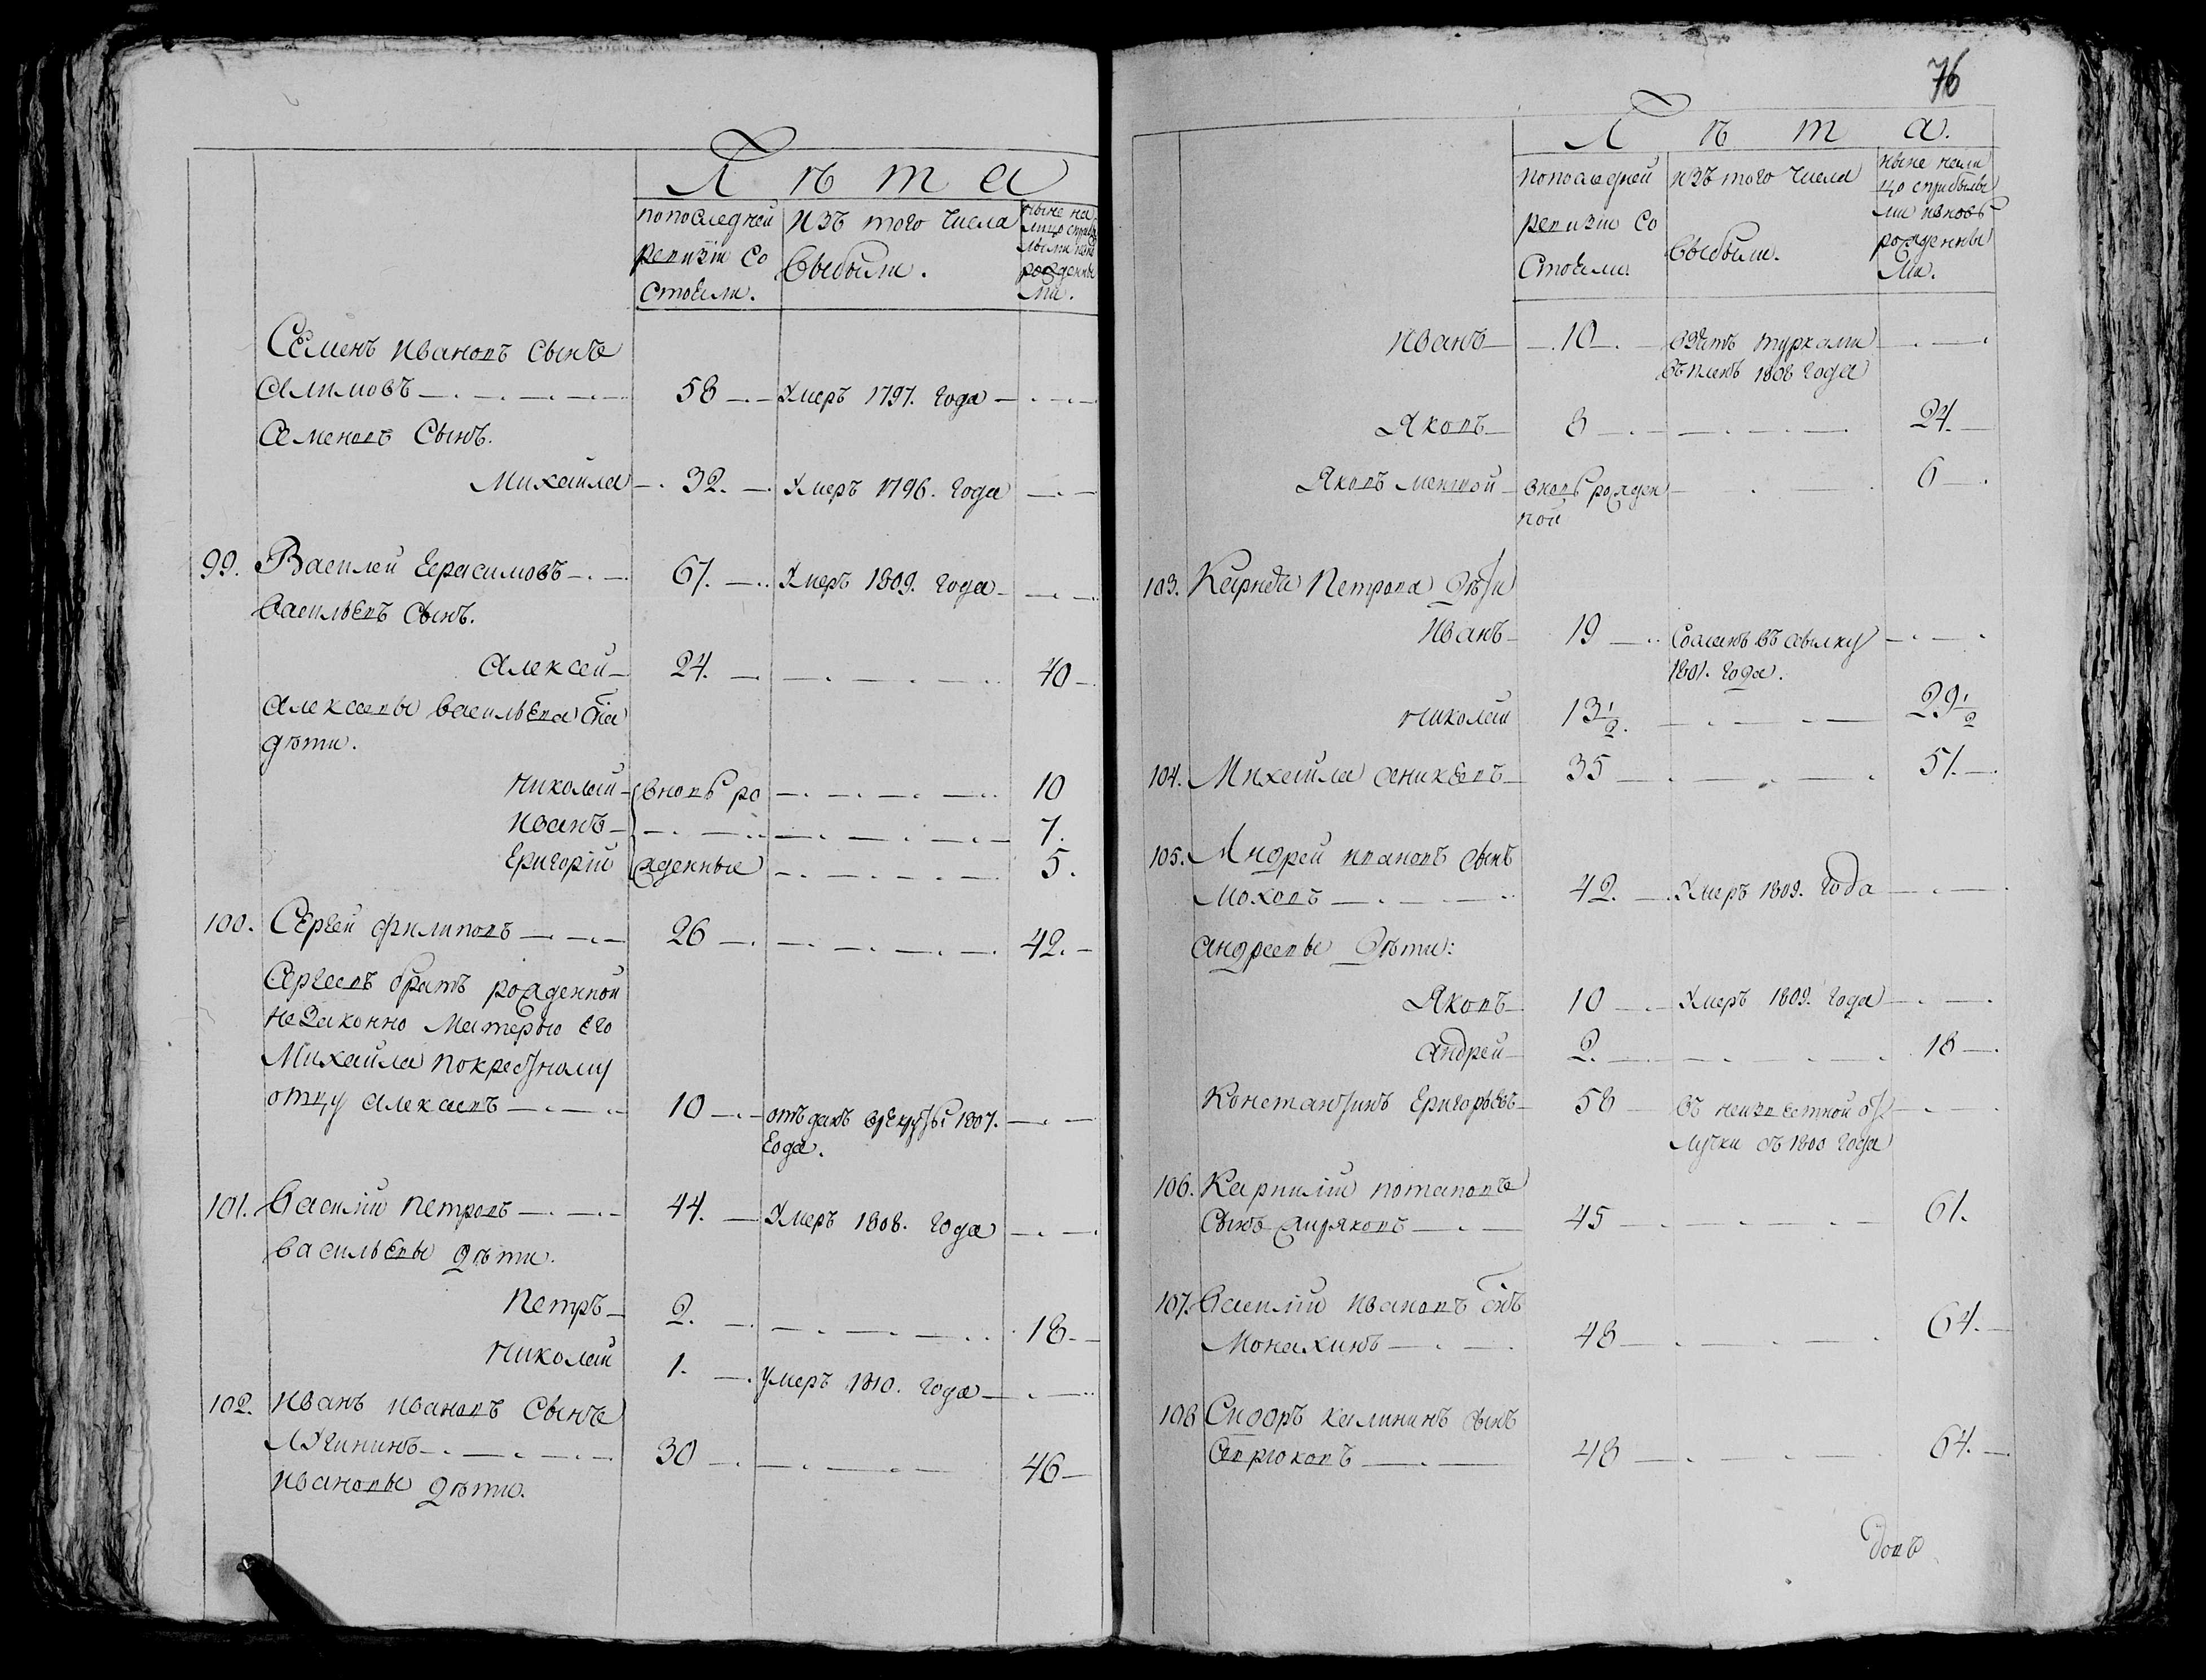 Лѣта
попоследней
ревизіи со
стояли.
изъ того числа
выбыли.
ныне на
рожденны
ми.
Семенъ Ивановъ сынъ
Алимовъ 58 Умеръ 1797. года
Семеновъ сынъ.
Михайла 32. Умеръ 1796. года
99. Василей Герасимовъ 67. Умеръ 1809. года
Васильевъ сынъ.
Алексей 24. 40
Алексеевы Васильева
дѣти.
Николай вновь ро 10
Иванъ 7.
Григорій жденные 5.
100. Сергей Филиповъ 26 42.
Сергеевъ братъ рожденной
незаконно матерью его
Михайла покрестному
отцу Алексеевъ 10 отъданъ врекруты 1807.
года.
101. Василій Петровъ 44. Умеръ 1808. года
Васильевы дѣти.
Петръ 2. 18.
Николай 1. умеръ 1810. года
102. Иванъ Ивановъ сынъ
Лучининъ 30 46
Ивановы дѣти.
76
Лѣта.
попоследней
ревизіи со
стояли
изъ того числа
выбыли.
ныне нали
цо сприбылы
ми ивновь
рожденны
ми.
Иванъ 10 взятъ турками
въ пленъ 1808 года
Яковъ 8 24.
Яковъ меншой вновь рожден 6
ной
103. Карнѣя Петрова дѣти
Иванъ 19 сосланъ въ ссылку
1801. года.
Николай 13 1/2. 29 1/2
104. Михайла Аникеевъ 35 51.
105. Андрей Ивановъ сынъ
Моховъ 42. Умеръ 1809. года
Андреевы дѣти:
Яковъ 10 Умеръ 1809. года
Андрей 2. 18
Константинъ Григорьевъ 58 въ неизвестной от
лучки съ 1800 года
106. Карпилій Потаповъ
сынъ 45 61.
107. Василій Ивановъ снъ
Монахинъ 48 64.
108 Сидоръ Калининъ сынъ
Севрюковъ 48 64.